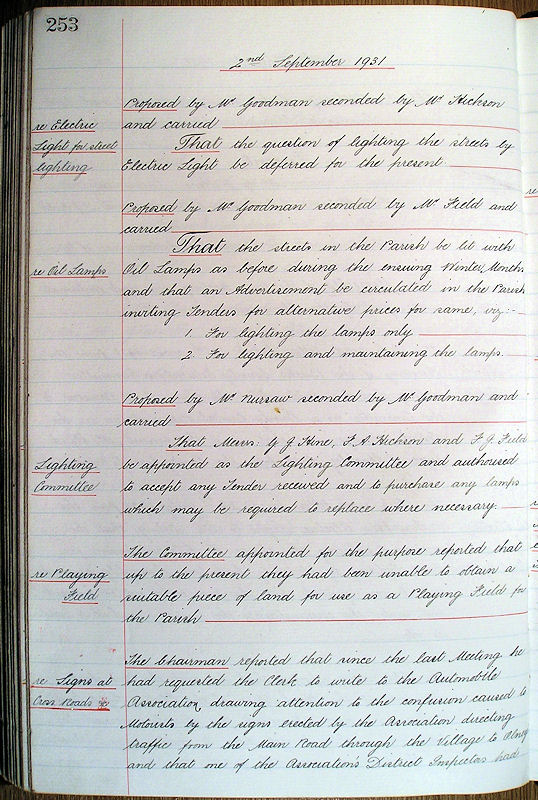 253
2nd September 1931
Proposed by Mr Goodman seconded by Mr Hickson
and carried
re Electric
Light for street
lighting
That the question of lighting the streets by
Electric Light be deferred for the present
Proposed by Mr Goodman seconded by Mr Field and
carried
re Oil Lamps
That the streets in the Parish be lit with
Oil Lamps as before during the ensuing Winter Months
and that an Advertisement be circulated in the Parish
inviting Tenders for alternative prices for same, viz:-
1. For lighting the lamps only
2. For lighting and maintaining the lamps.
Proposed by Mr Nursaw seconded by Mr Goodman and
carried
Lighting
Committee
That Messrs: G J Hine, F. A Hickson and F. J. Field
be appointed as the Lighting Committee and authorised
to accept any Tender received and to purchase any lamps
which may be required to replace where necessary.
re Playing
Field
The Committee appointed for the purpose reported that
up to the present they had been unable to obtain a
suitable piece of land for use as a Playing Field for
the Parish
re Signs at
Cross Roads
The Chairman reported that since the last Meeting he
had requested the Clerk to write to the Automobile
Association, drawing attention to the confusion caused to
Motorists by the signs erected by the Association directing
traffic from the Main Road through the Village to Olney
and that one of the Association's District Inspectors had